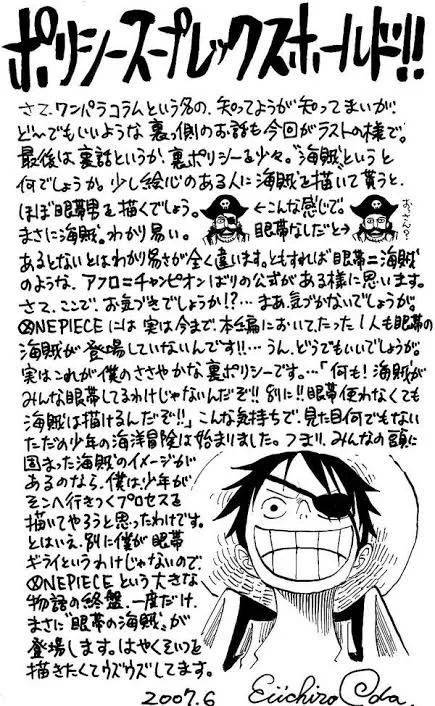 ポリシースープレックスホールド!!
さて、ワンパラコラムという名の、知ってようが知ってまいが、
ど〜でもいいような裏側のお話も今回がラストの様で。
最後は裏話というか、裏ポリシーを少々。"海賊"というと
何でしょうか。少し絵心のある人に"海賊"を描いて貰うと、
ほぼ眼帯男を描くでしょう。 ←こんな感じで。 おっさん?
まさに海賊。わかり易い。 眼帯なしだと→
あるとないとはわかり易さが全く違います。ともすれば"眼帯=海賊"
のような、アフロ=チャンピオンばりの公式がある様に思います。
さて、ここで、お気づきでしょうか!?…まあ気づかないでしょうが。
ONEPIECEには実は今まで、本編において、たった1人も眼帯の
海賊が登場していないんです!!…うん、どうでもいいでしょうが。
実はこれが僕のささやかな裏ポリシーです。…「何も!海賊が
みんな眼帯してるわけじゃないんだぞ!!別に!!眼帯使わなくても
海賊は描けるんだぞ!!」こんな気持ちで、見た目何でもない
ただの少年の海洋冒険は始まりました。つまり、みんなの頭に
固まった海賊のイメージが
あるのなら、僕は、少年が
そこへ行きつくプロセスを
描いてやろうと思ったわけです。
とはいえ、別に僕が眼帯
ギライというわけじゃないので、
ONEPIECEという大きな
物語の終盤、一度だけ、
まさに"眼帯の海賊"が
登場します。はやくそいつを
描きたくてウズウズしてます。
2007.6 Eiichiro Oda.